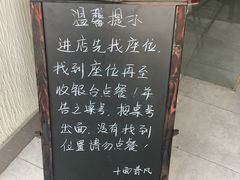 温馨提示
进店先找座位.
找到座位再至
收银台点餐!并
告之桌号,按桌号
出面,没有找到
位置请勿点餐!
十面春风